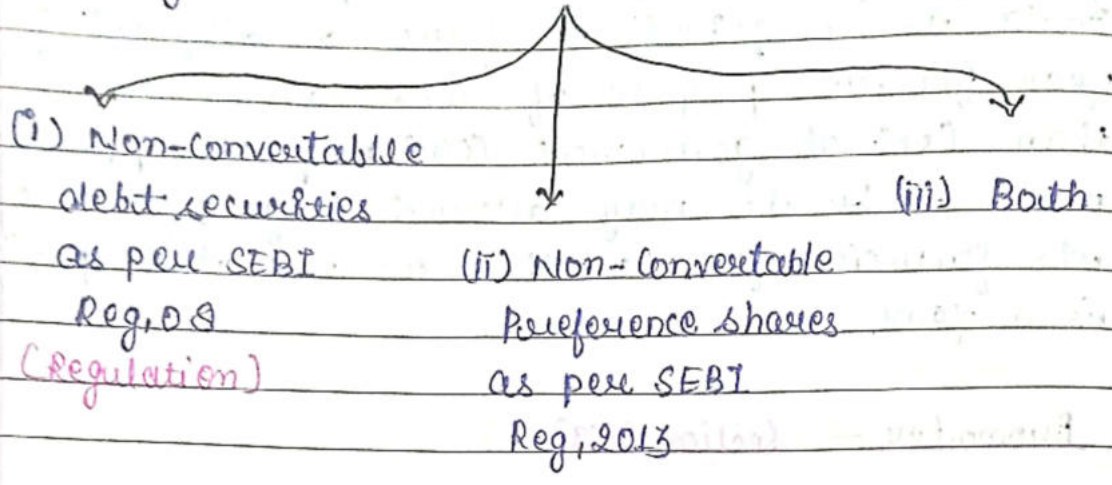 (i) Non-Convertablle
debit securities
as per SEBI
Reg, 08
(Regulation)
(ii) Non-Convertable
Preference shares
as per SEBI
Reg, 2013
(iii) Both